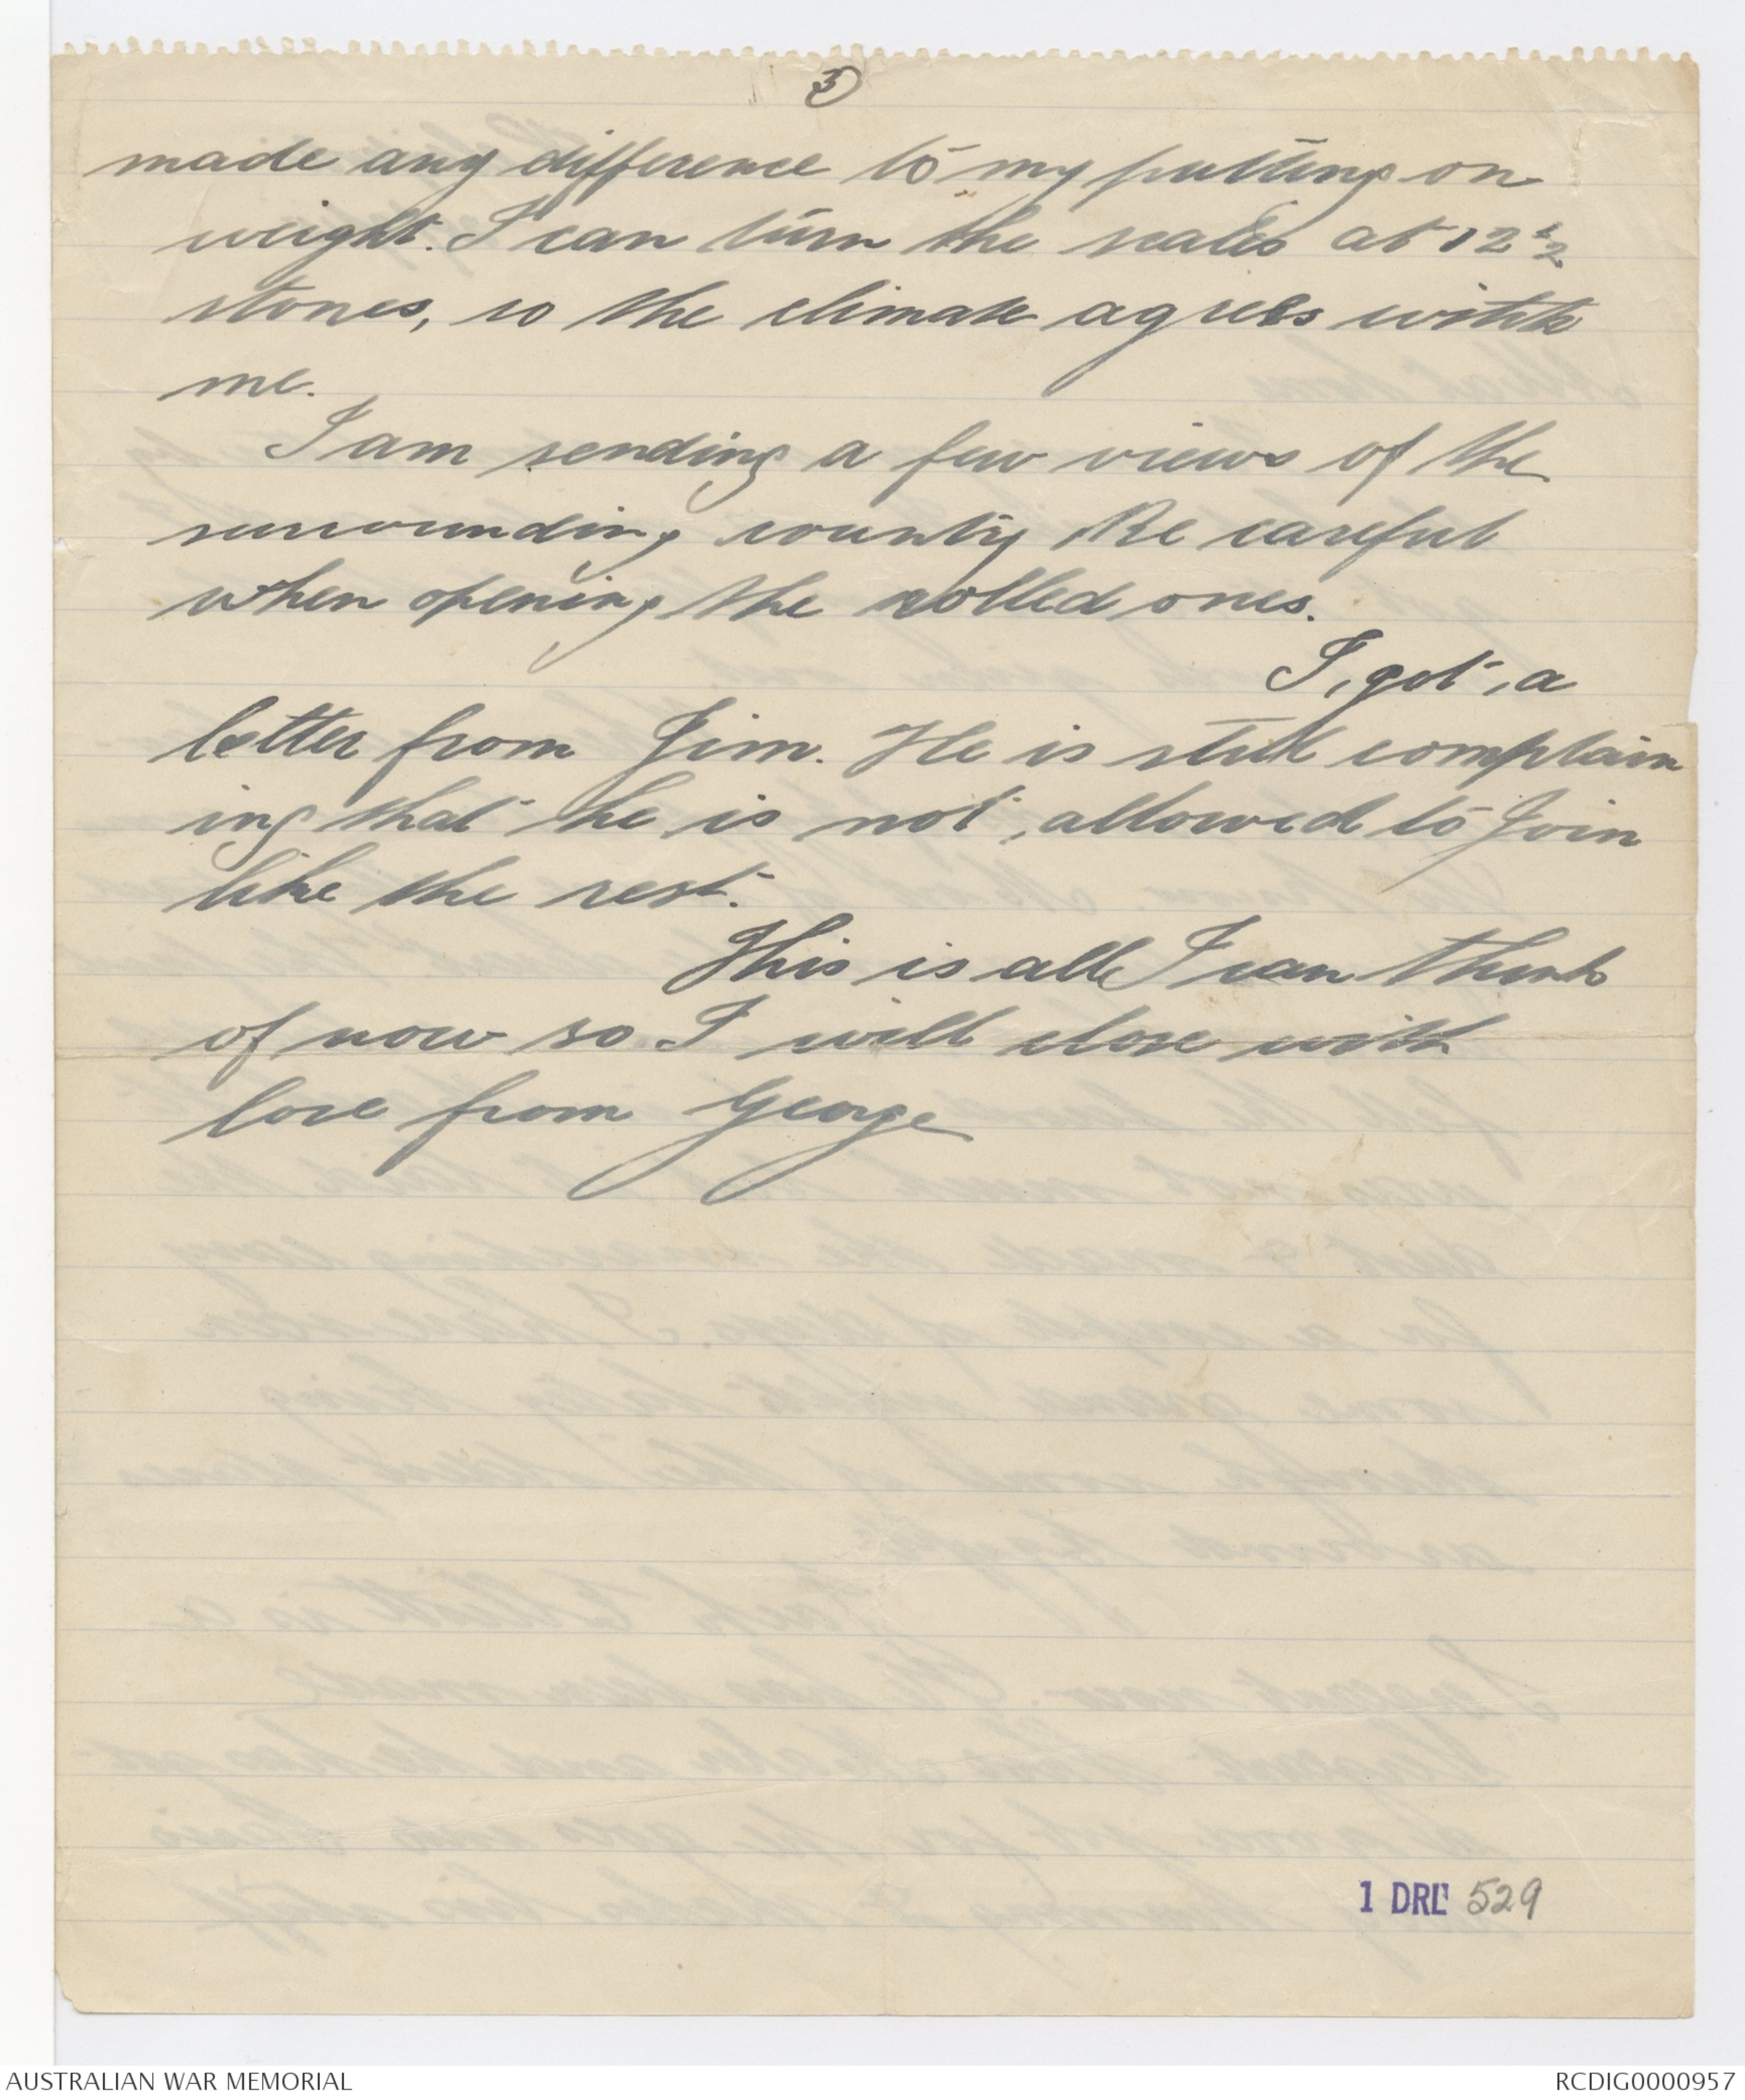 3)
made any difference to my putting on
weight. I can turn the scales at 12 1/2
stones, so the climate agrees with
me.
I am sending a few views of the
surrounding country Be careful
when opening the rolled ones.
I, got, a
letter from Jim. He is still complain
ing that he is not, allowed to Join
like the rest.
This is all I can think
of now so I will close with
love from George
1 DRL 529
AUSTRALIAN WAR MEMORIAL
RCDIG0000957